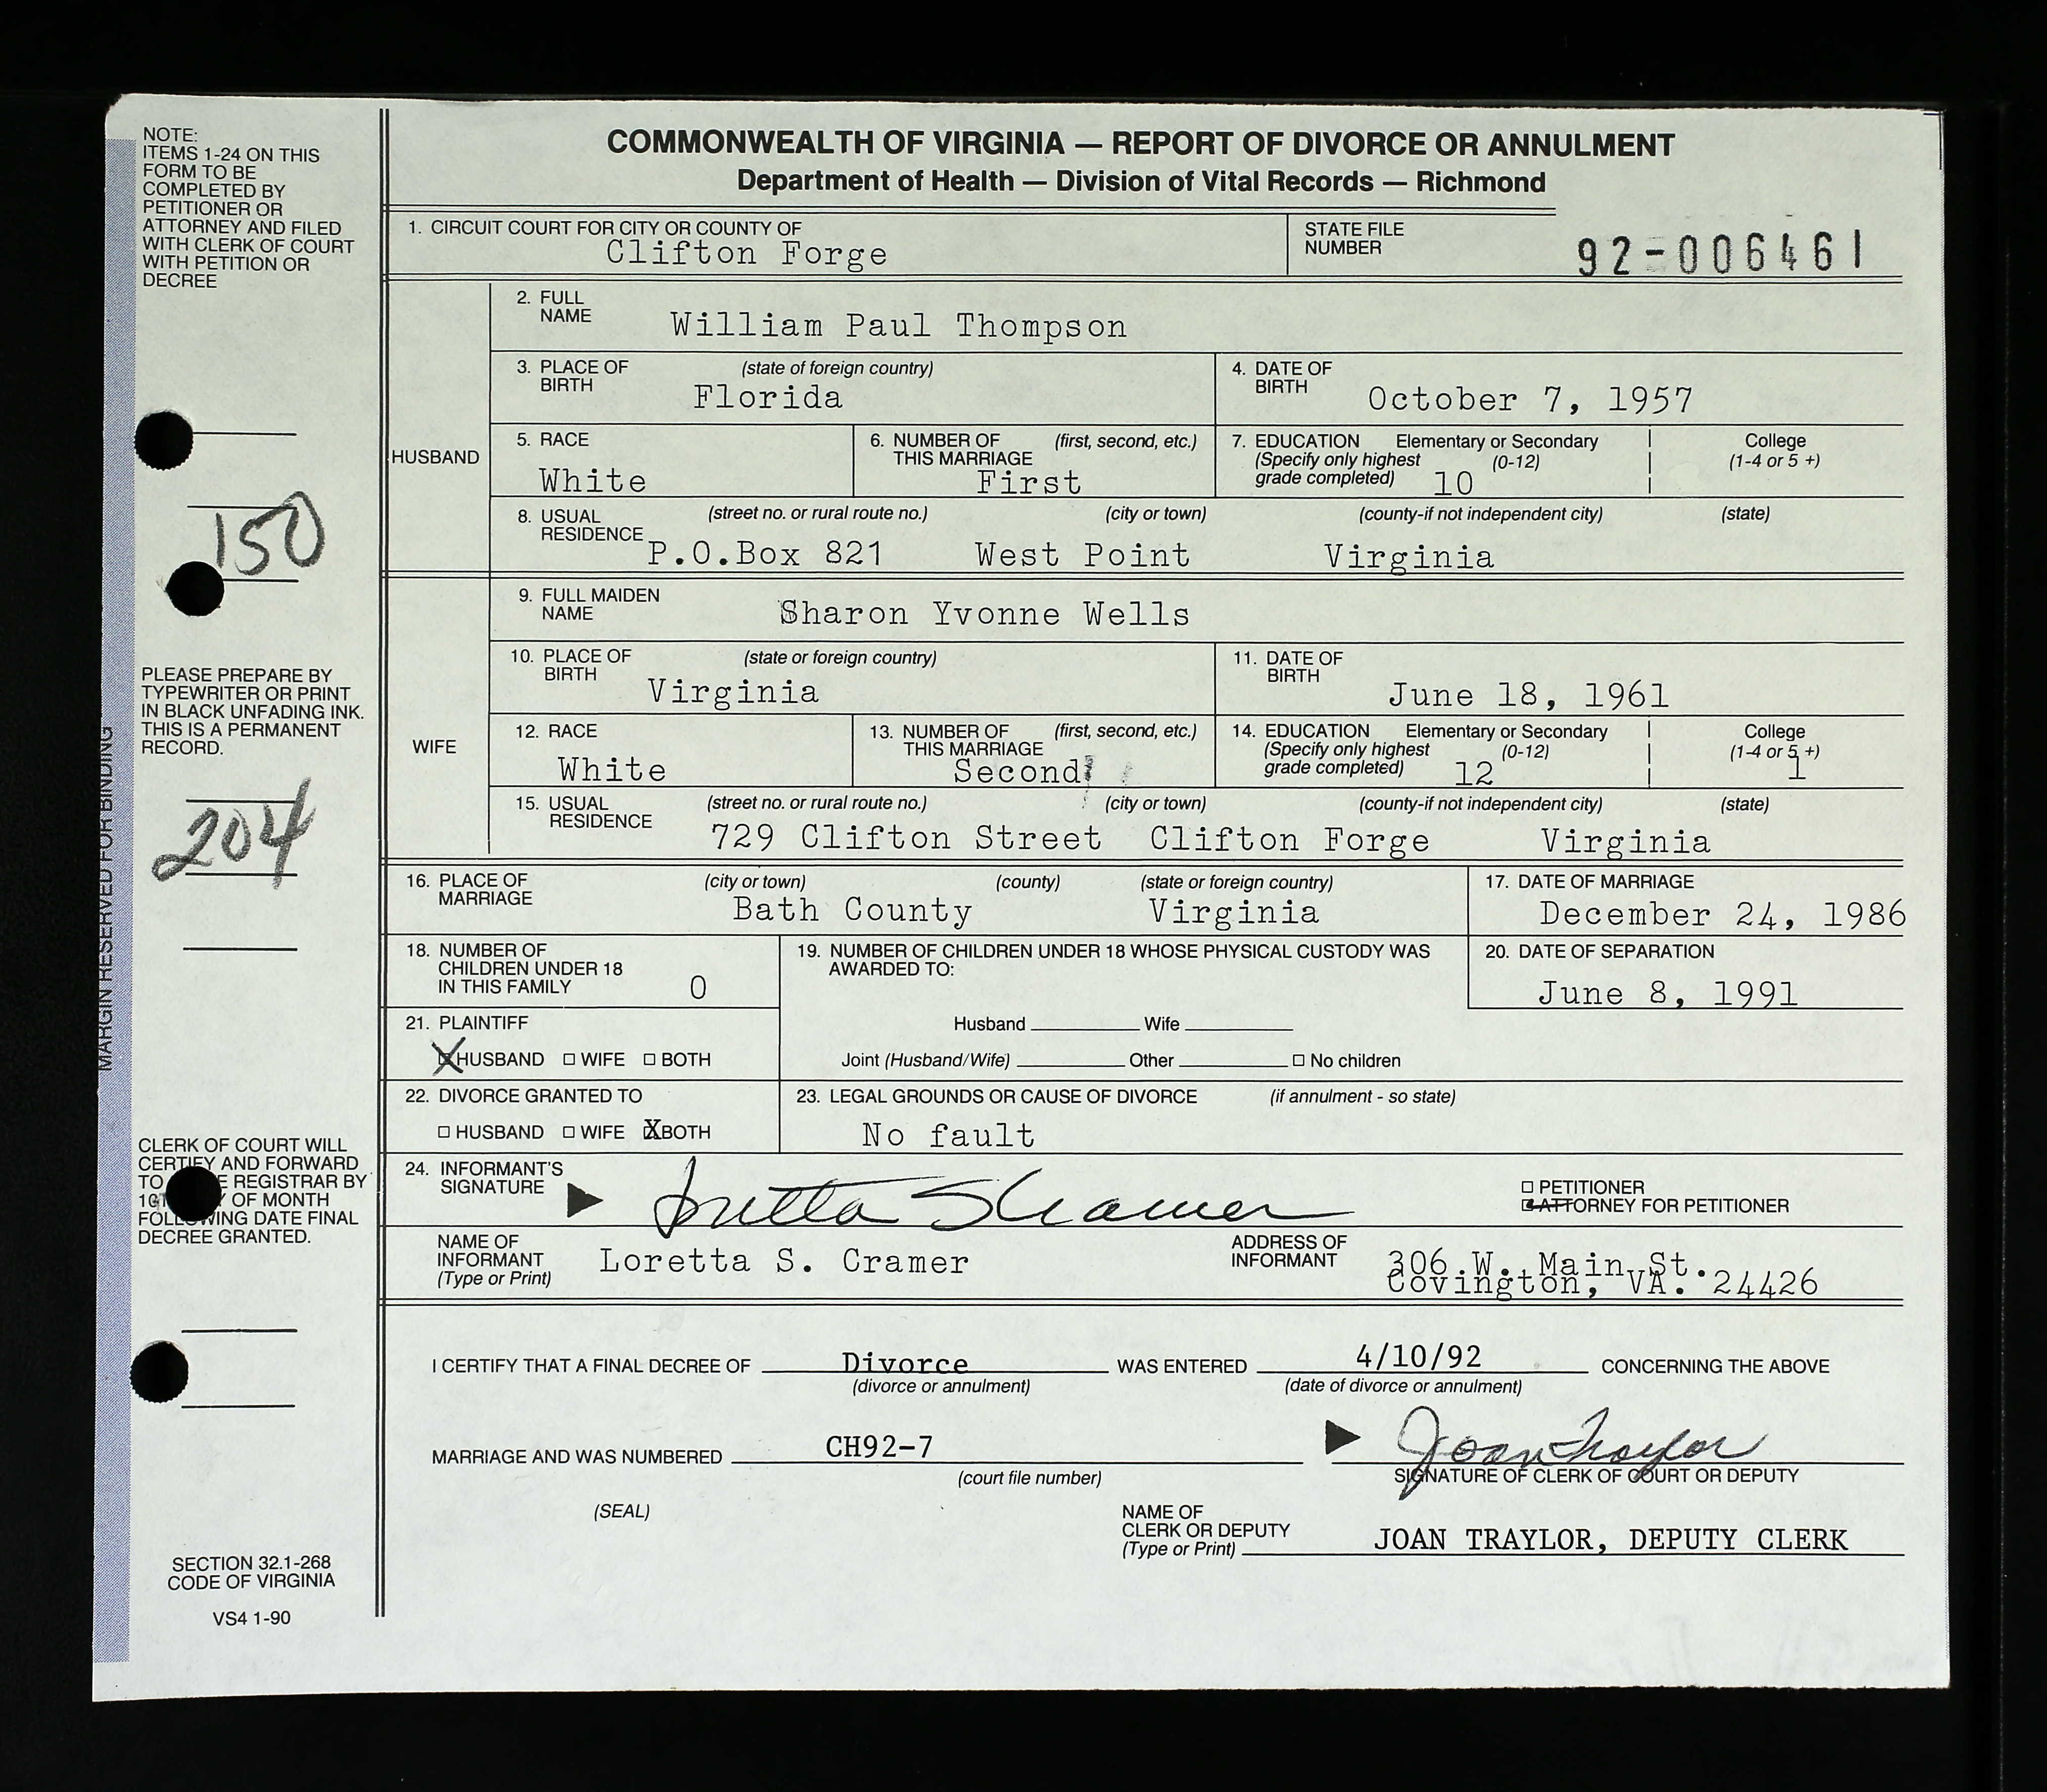 COMMONWEALTH OF VIRGINIA — REPORT OF DIVORCE OR ANNULMENT
Department of Health — Division of Vital Records — Richmond
NOTE:
ITEMS 1-24 ON THIS
FORM TO BE
COMPLETED BY
PETITIONER OR
ATTORNEY AND FILED
WITH CLERK OF COURT
WITH PETITION OR
DECREE
150
PLEASE PREPARE BY
TYPEWRITER OR PRINT
IN BLACK UNFADING INK.
THIS IS A PERMANENT
RECORD.
204
MARGIN RESERVED FOR BINDING
CLERK OF COURT WILL
CERTIFY AND FORWARD
TO E REGISTRAR BY
10 Y OF MONTH
FOLLOWING DATE FINAL
DECREE GRANTED.
SECTION 32.1-268
CODE OF VIRGINIA
VS4 1-90
1. CIRCUIT COURT FOR CITY OR COUNTY OF
Clifton Forge
STATE FILE
NUMBER
92-006461
HUSBAND
2. FULL
NAME
William Paul Thompson
3. PLACE OF (state of foreign country)
BIRTH
Florida
4. DATE OF
BIRTH
October 7, 1957
5. RACE
White
6. NUMBER OF (first, second, etc.)
THIS MARRIAGE
First
7. EDUCATION Elementary or Secondary College
(Specify only highest (0-12) (1-4 or 5 +)
grade completed) 10
8. USUAL (street no. or rural route no.) (city or town) (county-if not independent city) (state)
RESIDENCE
P.O.Box 821 West Point Virginia
WIFE
9. FULL MAIDEN
NAME
Sharon Yvonne Wells
10. PLACE OF (state or foreign country)
BIRTH
Virginia
11. DATE OF
BIRTH
June 18, 1961
12. RACE
White
13. NUMBER OF (first, second, etc.)
THIS MARRIAGE
Second
14. EDUCATION Elementary or Secondary College
(Specify only highest (0-12) (1-4 or 5 +)
grade completed) 12 1
15. USUAL (street no. or rural route no.) (city or town) (county-if not independent city) (state)
RESIDENCE
729 Clifton Street Clifton Forge Virginia
16. PLACE OF (city or town) (county) (state or foreign country)
MARRIAGE
Bath County Virginia
17. DATE OF MARRIAGE
December 24, 1986
18. NUMBER OF
CHILDREN UNDER 18
IN THIS FAMILY 0
19. NUMBER OF CHILDREN UNDER 18 WHOSE PHYSICAL CUSTODY WAS
AWARDED TO:
Husband Wife
Joint (Husband/Wife) Other No children
20. DATE OF SEPARATION
June 8, 1991
21. PLAINTIFF
X HUSBAND WIFE BOTH
22. DIVORCE GRANTED TO
HUSBAND WIFE X BOTH
23. LEGAL GROUNDS OR CAUSE OF DIVORCE (if annulment - so state)
No fault
24. INFORMANT'S
SIGNATURE
Loretta S Cramer
PETITIONER
ATTORNEY FOR PETITIONER
NAME OF
INFORMANT
(Type or Print)
Loretta S. Cramer
ADDRESS OF
INFORMANT
306 W. Main St.
Covington, VA. 24426
I CERTIFY THAT A FINAL DECREE OF Divorce WAS ENTERED 4/10/92 CONCERNING THE ABOVE
(divorce or annulment) (date of divorce or annulment)
MARRIAGE AND WAS NUMBERED CH92-7
(court file number)
Joan Traylor
SIGNATURE OF CLERK OF COURT OR DEPUTY
(SEAL)
NAME OF
CLERK OR DEPUTY
(Type or Print)
JOAN TRAYLOR, DEPUTY CLERK